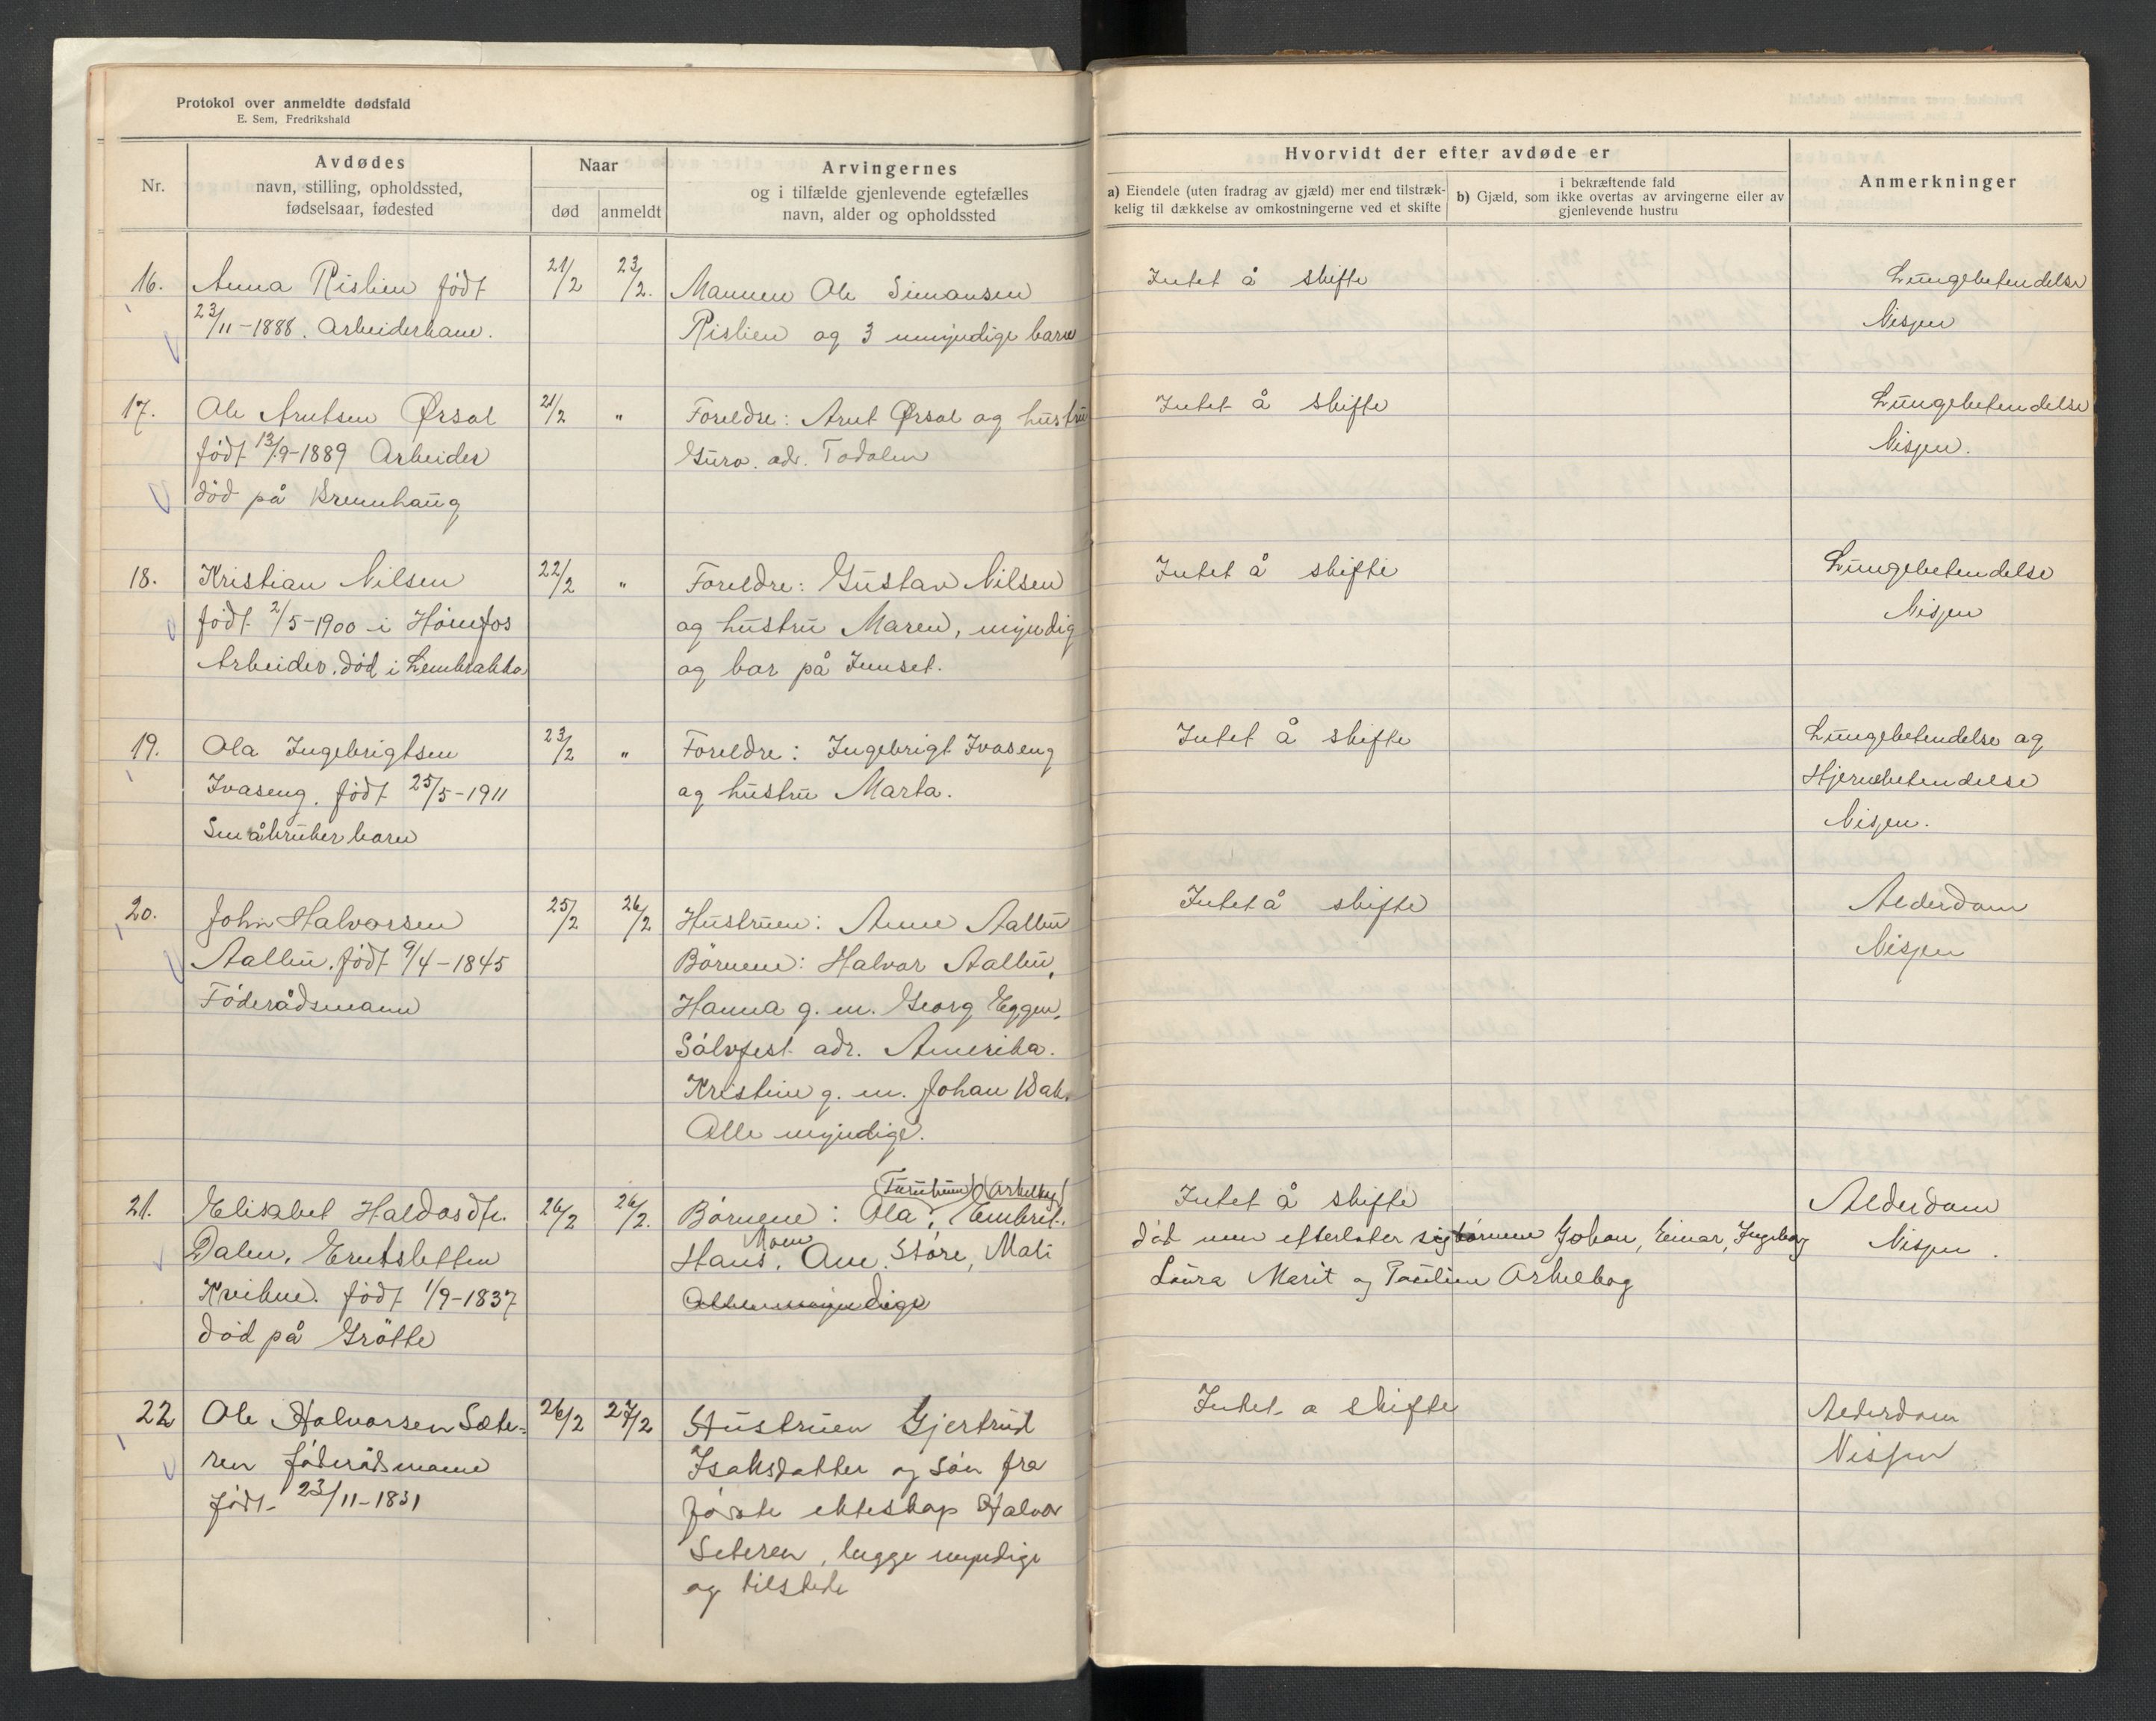 Protokol over anmeldte dødsfald
E. Sem, Fredrikshald
Nr.
Avdødes
navn, stilling, opholdssted,
fødselsaar, fødested
Naar
død
anmeldt
Arvingernes
og i tilfælde gjenlevende egtefælles
navn, alder og opholdssted
Hvorvidt der efter avdøde er
a) Eiendele (uten fradrag av gjæld) mer end tilstræk-
kelig til dækkelse av omkostningerne ved et skifte
i bekræftende fald
b) Gjæld, som ikke overtas av arvingerne eller av
gjenlevende hustru
Anmerkninger
16.
Anna Rislien født
23/11-1888. Arbeiderkone.
21/2
23/2.
Mannen Ole Simonsen
Rislien og 3 umyndige barn
Intet å skifte
Lungebetendelse
Nisjen
17.
Ole Arntsen Ørsal
født 13/9-1889 Arbeider
død på Brennhaug
21/2
"
Foreldre: Arnt Ørsal og hustru
Guro. adr. Todalen
Intet å skifte
Lungebetendelse
Nisjen.
18.
Kristian Nilsen
født 2/5-1900 i Hönefos
Arbeider. död i
22/2
"
Foreldre: Gustav Nilsen
og hustru Maren, myndig
og bor på Innset.
Intet å skifte
Lungebetendelse
Nisjen
19.
Ola Ingebrigtsen
Ivaseng. født 25/5-1911
Småbrukerbarn
23/2
"
Foreldre: Ingebrigt Ivaseng
og hustru Marta.
Intet å skifte
Lungebetendelse og
Hjernebetendelse
Nisjen.
20.
John Halvorsen
Aalbu. født 9/4-1845
Föderådsmann
25/2
26/2
Hustruen: Anne Aalbu
Börnene: Halvor Aalbu,
Hanna g. m. Georg Eggen,
Sölvfest adr. Amerika.
Kristine g. m. Johan Bak.
Alle myndige.
Intet å skifte
Alderdom
Nisjen
21.
Elisabet Haldosdtr.
Dalen,
Kvikne. født 1/9-1837
död på Grötte
26/2
26/2.
Börnene: Ola, Embret.
Moen
Hans, Ane. Störe, Mali
Alle myndige
Intet å skifte
död men efterlater sig börnene Johan, Einar, Ingeborg
Laura Marit og Pauline
Alderdom
Nisjen.
22
Ole Halvorsen Sæte-
ren föderådsmann
født 23/11-1831
26/2
27/2
Hustruen Gjertrud
Isaksdatter og sön fra
förste ekteskap Halvor
Seteren, begge myndige
og tilstede
Intet a skifte
Alderdom
Nisjen